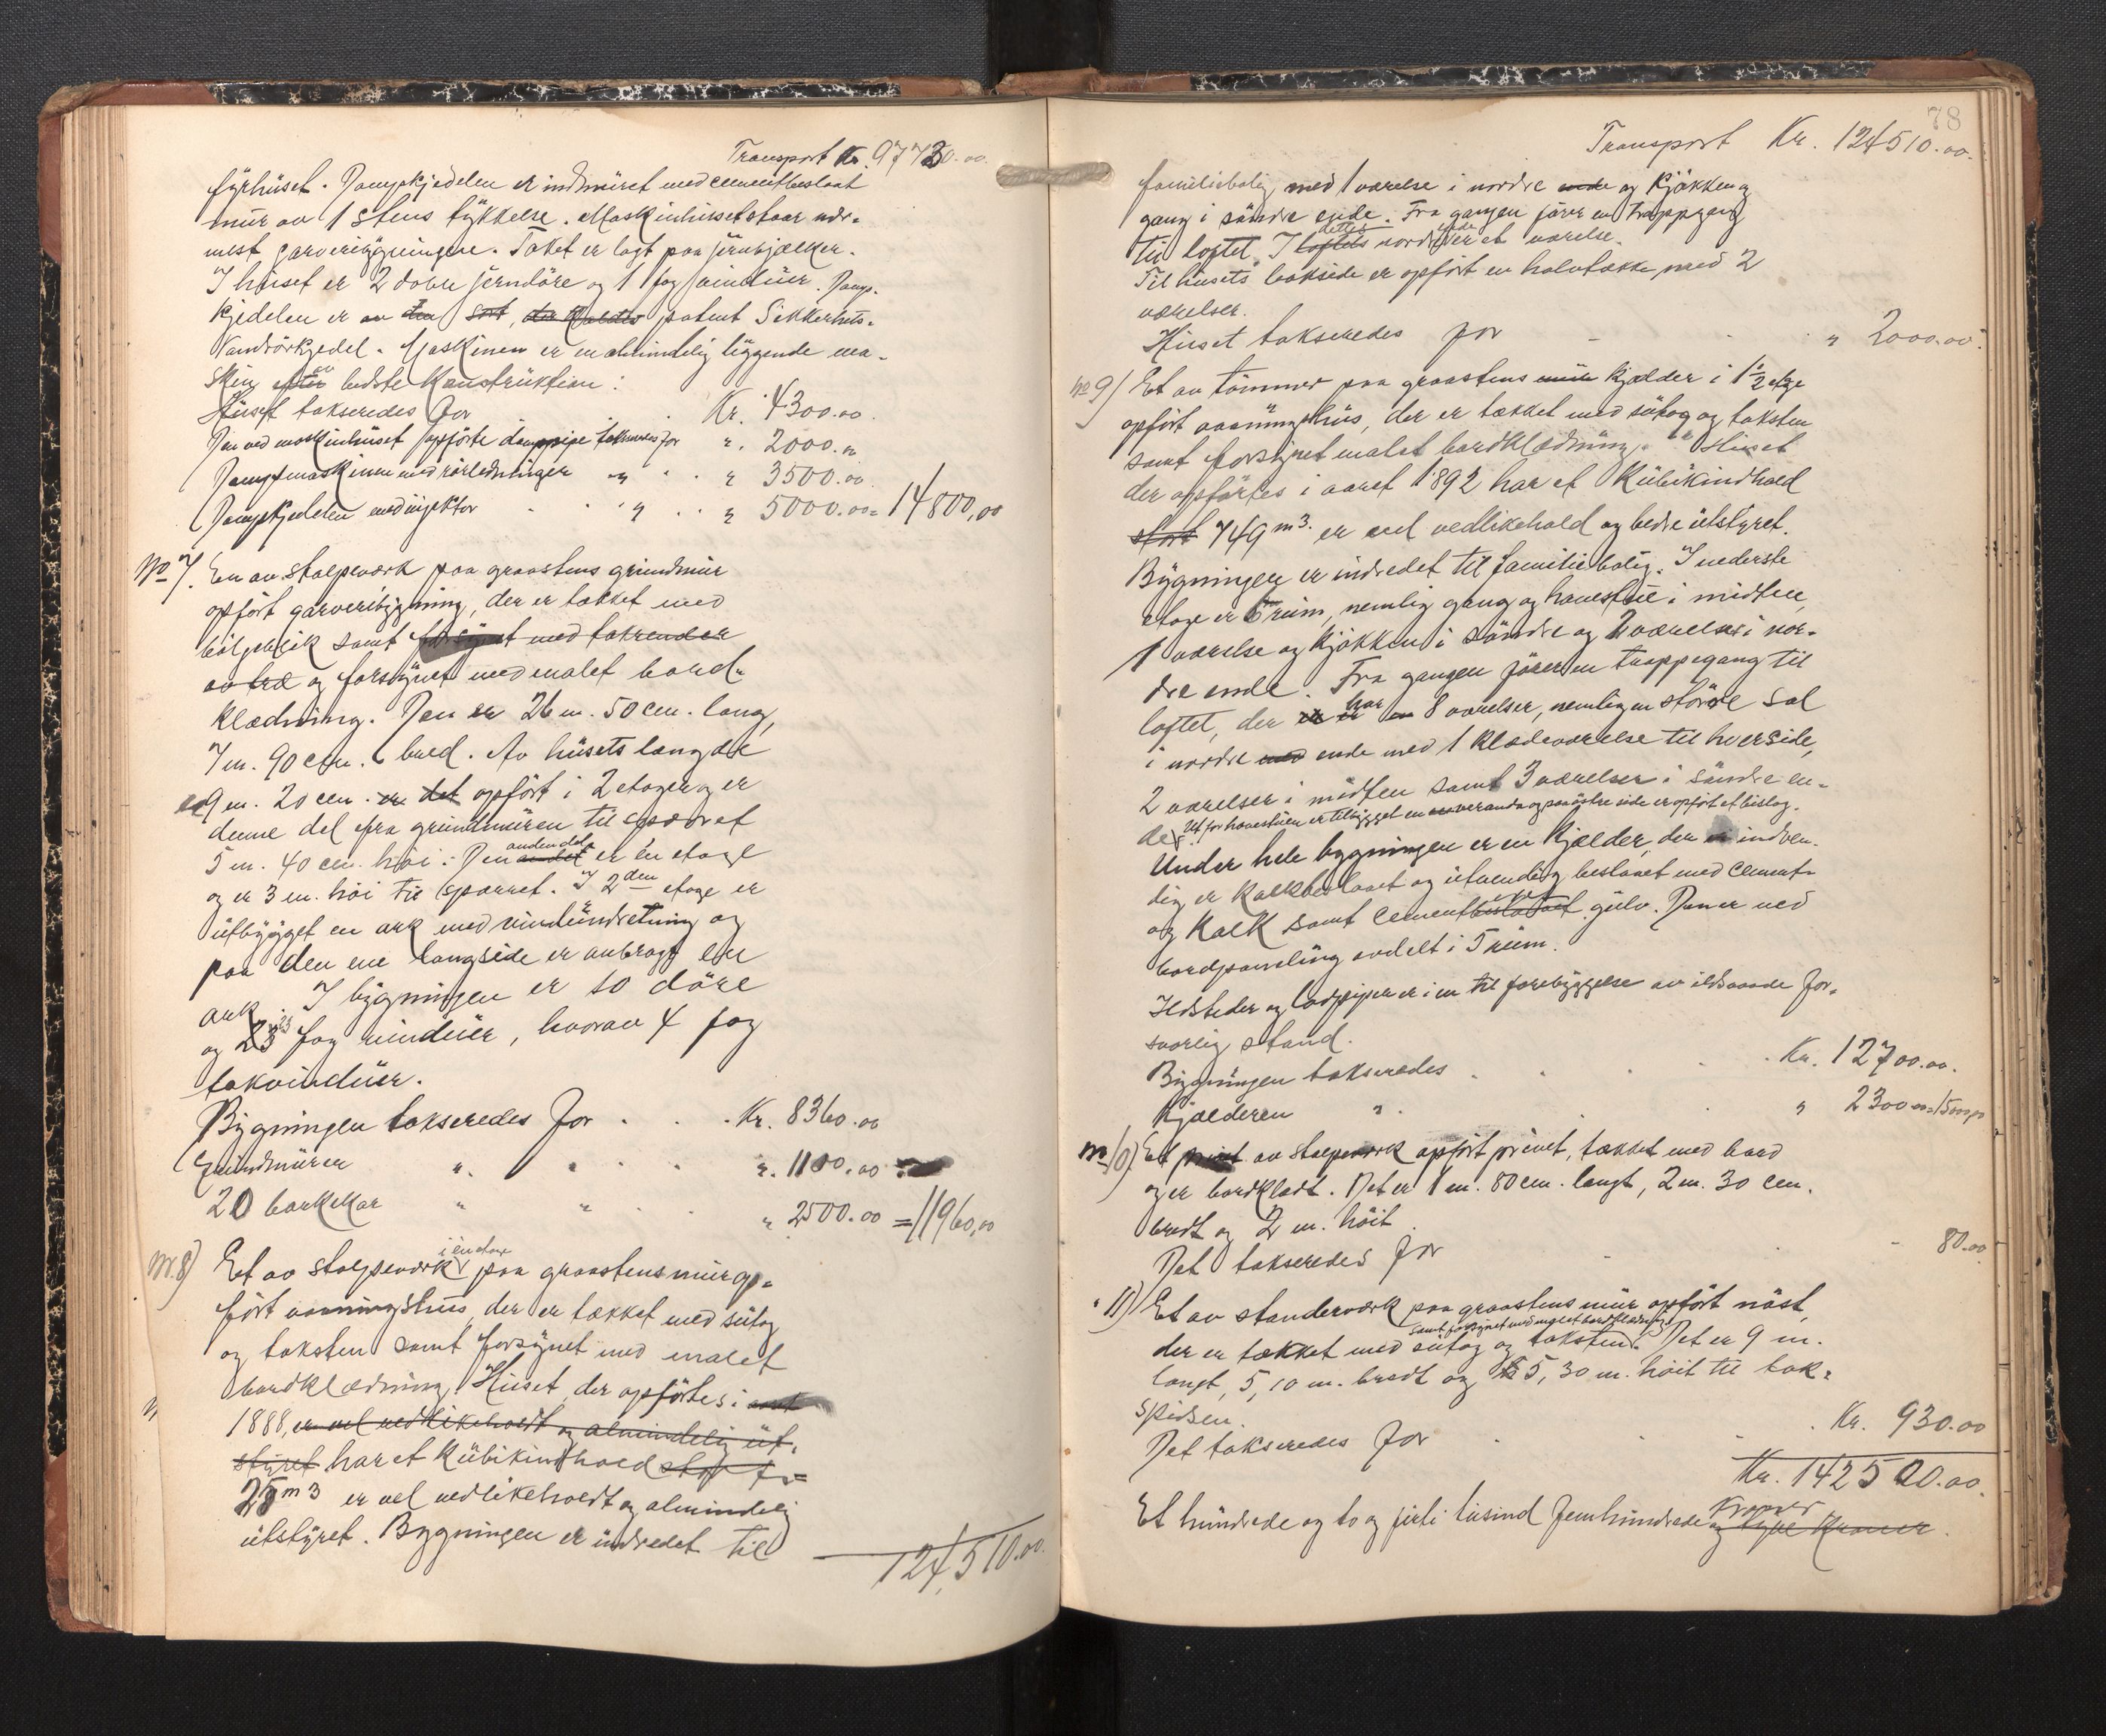 Transport Kr. 97730.00
fyrhuset. Dampkjedelen er indmuret med cementbeslaat
mur av 1 Stens tykkelse. Maskinhuset staar nær-
mest garveribygningene. Taket er lagt paa jernbjælker.
I huset er 2 doble jerndöre og 1 fag vinduer. Damp-
kjedelen er av den sort, der kaldes patent Sikkerhets-
Vandrörkjedel. Maskinen er en almindelig liggende ma-
skin efter av bedste Konstruktion:
Huset takseredes for Kr. 4300.00.
Den ved maskinhuset opförte damppipe takseredes for " 2000.00
Dampmaskinen med rörledninger " " 3500.00.
Dampkjedelen med injektor " " 5000.00 = 14800,00
No 7. En av stolpeværk paa graastens grundmur
opfört garveribygning, der er tækket med
bölgeblik samt forsynet med takrender
av træ og forsynet med malet bord-
klædning. Den er 26 m. 50 cm. lang,
7 m. 90 ctm. bred. Av husets længde
er 9 m. 20 cm. er det opfört i 2 etager og er
denne del fra grundmuren til sparret
5 m. 40 cm. höi. Den andet anden del er en etage
og er 3 m. höi til sparret. I 2den etage er
utbygget en ark med vinduindretning og
paa den ene langside er anbragt en
ark. I bygningen er 10 döre
og 23 fag vinduer, hvorav 4 fag
takvinduer.
Bygningen takseredes for Kr. 8360.00
Grundmuren " " 1100.00
20 barkekar " " 2500.00 = 11960,00
Nr. 8) Et av stolpeværk i én etage paa graastensmur op-
fört vaaningshus, der er tækket med sutag
og taksten samt forsynet med malet
bordklædning. Huset, der opförtes i aaret
1888, er vel vedlikeholdt og almindelig ut-
styret har et Kubikindhold stort
25 m3 er vel vedlikeholdt og almindelig
utstyret. Bygningen er indredet til
124,510.00
78
Transport Kr. 124510.00.
familiebolig med 1 værelse i nordre ende og kjökken og
gang i söndre ende. Fra gangen förer en trappegang
til loftet. I loftets dettes nordende er et værelse.
Til husets bakside er opfört en halvtække med 2
værelser.
Huset takseredes for " 2000.00.
No 9) Et av tömmer paa graastens mur kjælder i 1 1/2 etage
opfört vaaningshus, der er tækket med sutag og taksten
samt forsynet malet bordklædning. Huset
der opförtes i aaret 1892 har et Kubikindhold
stort 749 m3. er vel vedlikehold og bedre utstyret.
Bygningen er indredet til familiebolig. I nederste
etage er 6 rum, nemlig gang og havestue i midten,
1 værelse og kjökken i söndre og 2 værelser i nor-
dre ende. Fra gangen förer en trappegang til
loftet, der er har 8 værelser, nemlig en större sal
i nordre med ende med 1 klædeværelse til hver side,
2 værelser i midten samt 3 værelser i söndre en-
de. Ut for havestuen er tilbygget en veranda og paa östre side er opfört et bislag.
Under hele bygningen er en kjælder, der er indven-
dig er kalkbeslaaet og utvendig beslaaet med cement
og Kalk samt cementbeslaaet gulv. Den er ved
bordpaneling avdelt i 5 rum.
Ildsteder og ladpiper er i en til forebyggelse av ildsvaade for-
svarlig stand.
Bygningen takseredes Kr. 12700.00.
Kjælderen " " 2300.00 = 15000,00
No 10) Et privet av stolpeværk opfört privet, tækket med bord
og er bordklædt. Det er 1 m. 80 cm. langt, 2 m. 30 cm.
bredt og 2 m. höit.
Det takseredes for 80.00
" 11) Et av standerværk paa graastens mur opfört nöst,
samt forsynet med malet bordklædning
der er tækket med sutag og taksten. Det er 9 m.
langt, 5,10 m. bredt og 5,30 m. höit til tak-
spidsen.
Det takseredes for Kr. 930.00
Kr. 142500.00.
Et hundrede og to og firti tusind femhundrede Kroner og tyve Kroner.